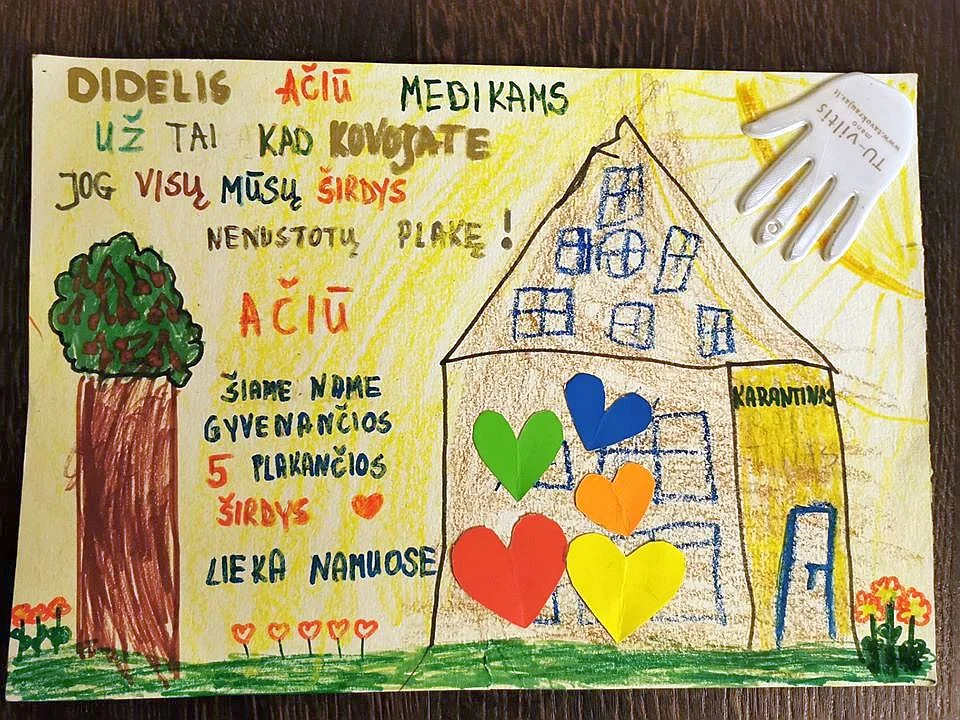 DIDELIS AČIŪ MEDIKAMS
UŽ TAI KAD KOVOJATE
JOG VISŲ MŪSŲ ŠIRDYS
NENUSTOTŲ PLAKĘ!
AČIŪ
ŠIAME NAME
GYVENANČIOS
5 PLAKANČIOS
ŠIRDYS
LIEKA NAMUOSE
KARANTINAS
TU-viltis
mano